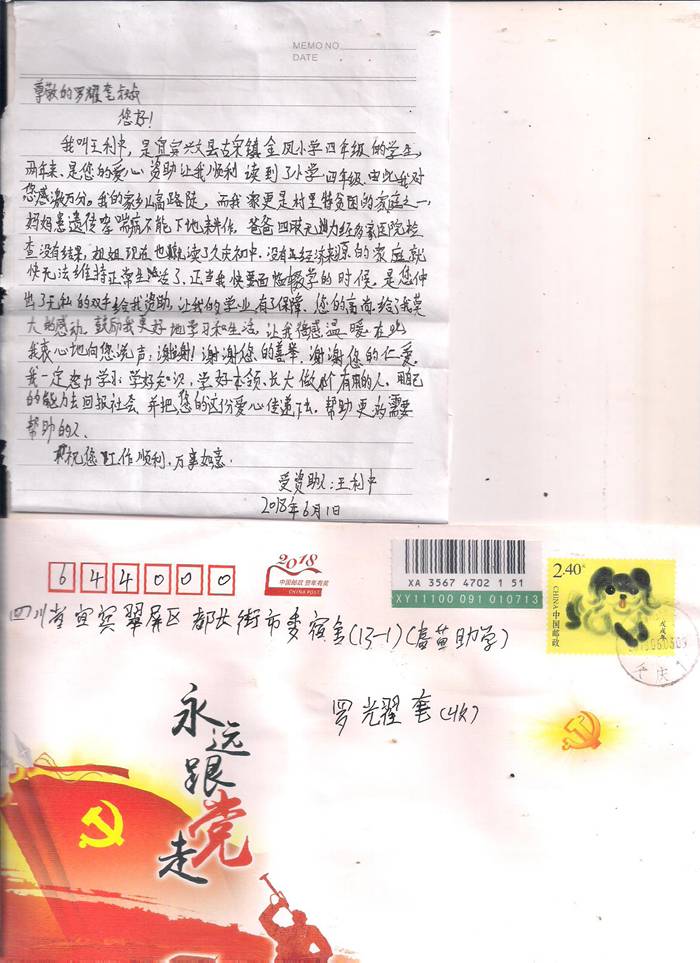 MEMO NO
DATE
尊敬的罗耀奎叔叔
您好!
我叫王利中,是宜宾兴文县古宋镇金凤小学四年级的学生,
两年来、是您的爱心资助让我顺利读到了小学四年级.由此我对
您感激万分。我的家乡山高路陡,而我家更是村里特贫困的家庭之一,
妈妈患遗传哮喘病不能下地耕作,爸爸四肢无力经多家医院检
查没有结果,姐姐现在也读了初中.没有经济来源的家庭就
快无法维持正常生活了.正当我快要面临辍学的时候,是您伸
出了无私的双手给我资助,让我的学业有了保障,您的高尚给了我莫
大的感动,鼓励我更好地学习和生活,让我倍感温暖在此
我衷心地向您说声:谢谢!谢谢您的善举,谢谢您的仁爱,
我一定努力学习学好知识,学好本领,长大做个有用的人,用自己
的能力去回报社会,并把您的这份爱心传递下去,帮助更多需要
帮助的人.
祝您工作顺利,万事如意.
受资助人:王利中
2018年6月1日
644000
2018
中国邮政 贺年有奖
CHINA POST
XA 3567 4702 1 51
XY11100 091 010713
2.40元
CHINA
中国邮政
戊戌年
四川省宜宾翠屏区都长街市委宿舍(13-1)(育苗助学)
罗光耀奎(收)
永远跟党走